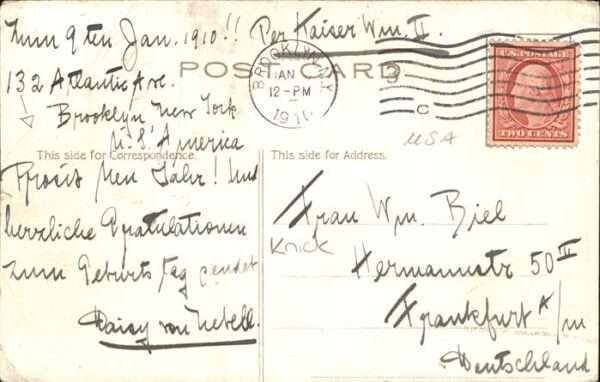 Zum 9ten Jan. 1910!! Per Kaiser Wm. II.
POST CARD
BROOKLYN, N.Y.
JAN
12-PM
1910
C
U.S. POSTAGE
TWO CENTS
132 Atlantic Ave.
Brooklyn New York
U. S. America
USA
This side for Correspondence.
Prosit Neu Jahr! Und
herzliche Gratulationen
zum Geburtstag sendet
Daisy von
This side for Address.
Frau Wm. Biel
Knick
Hermannstr 50 II
Frankfurt a/m
Deutschland